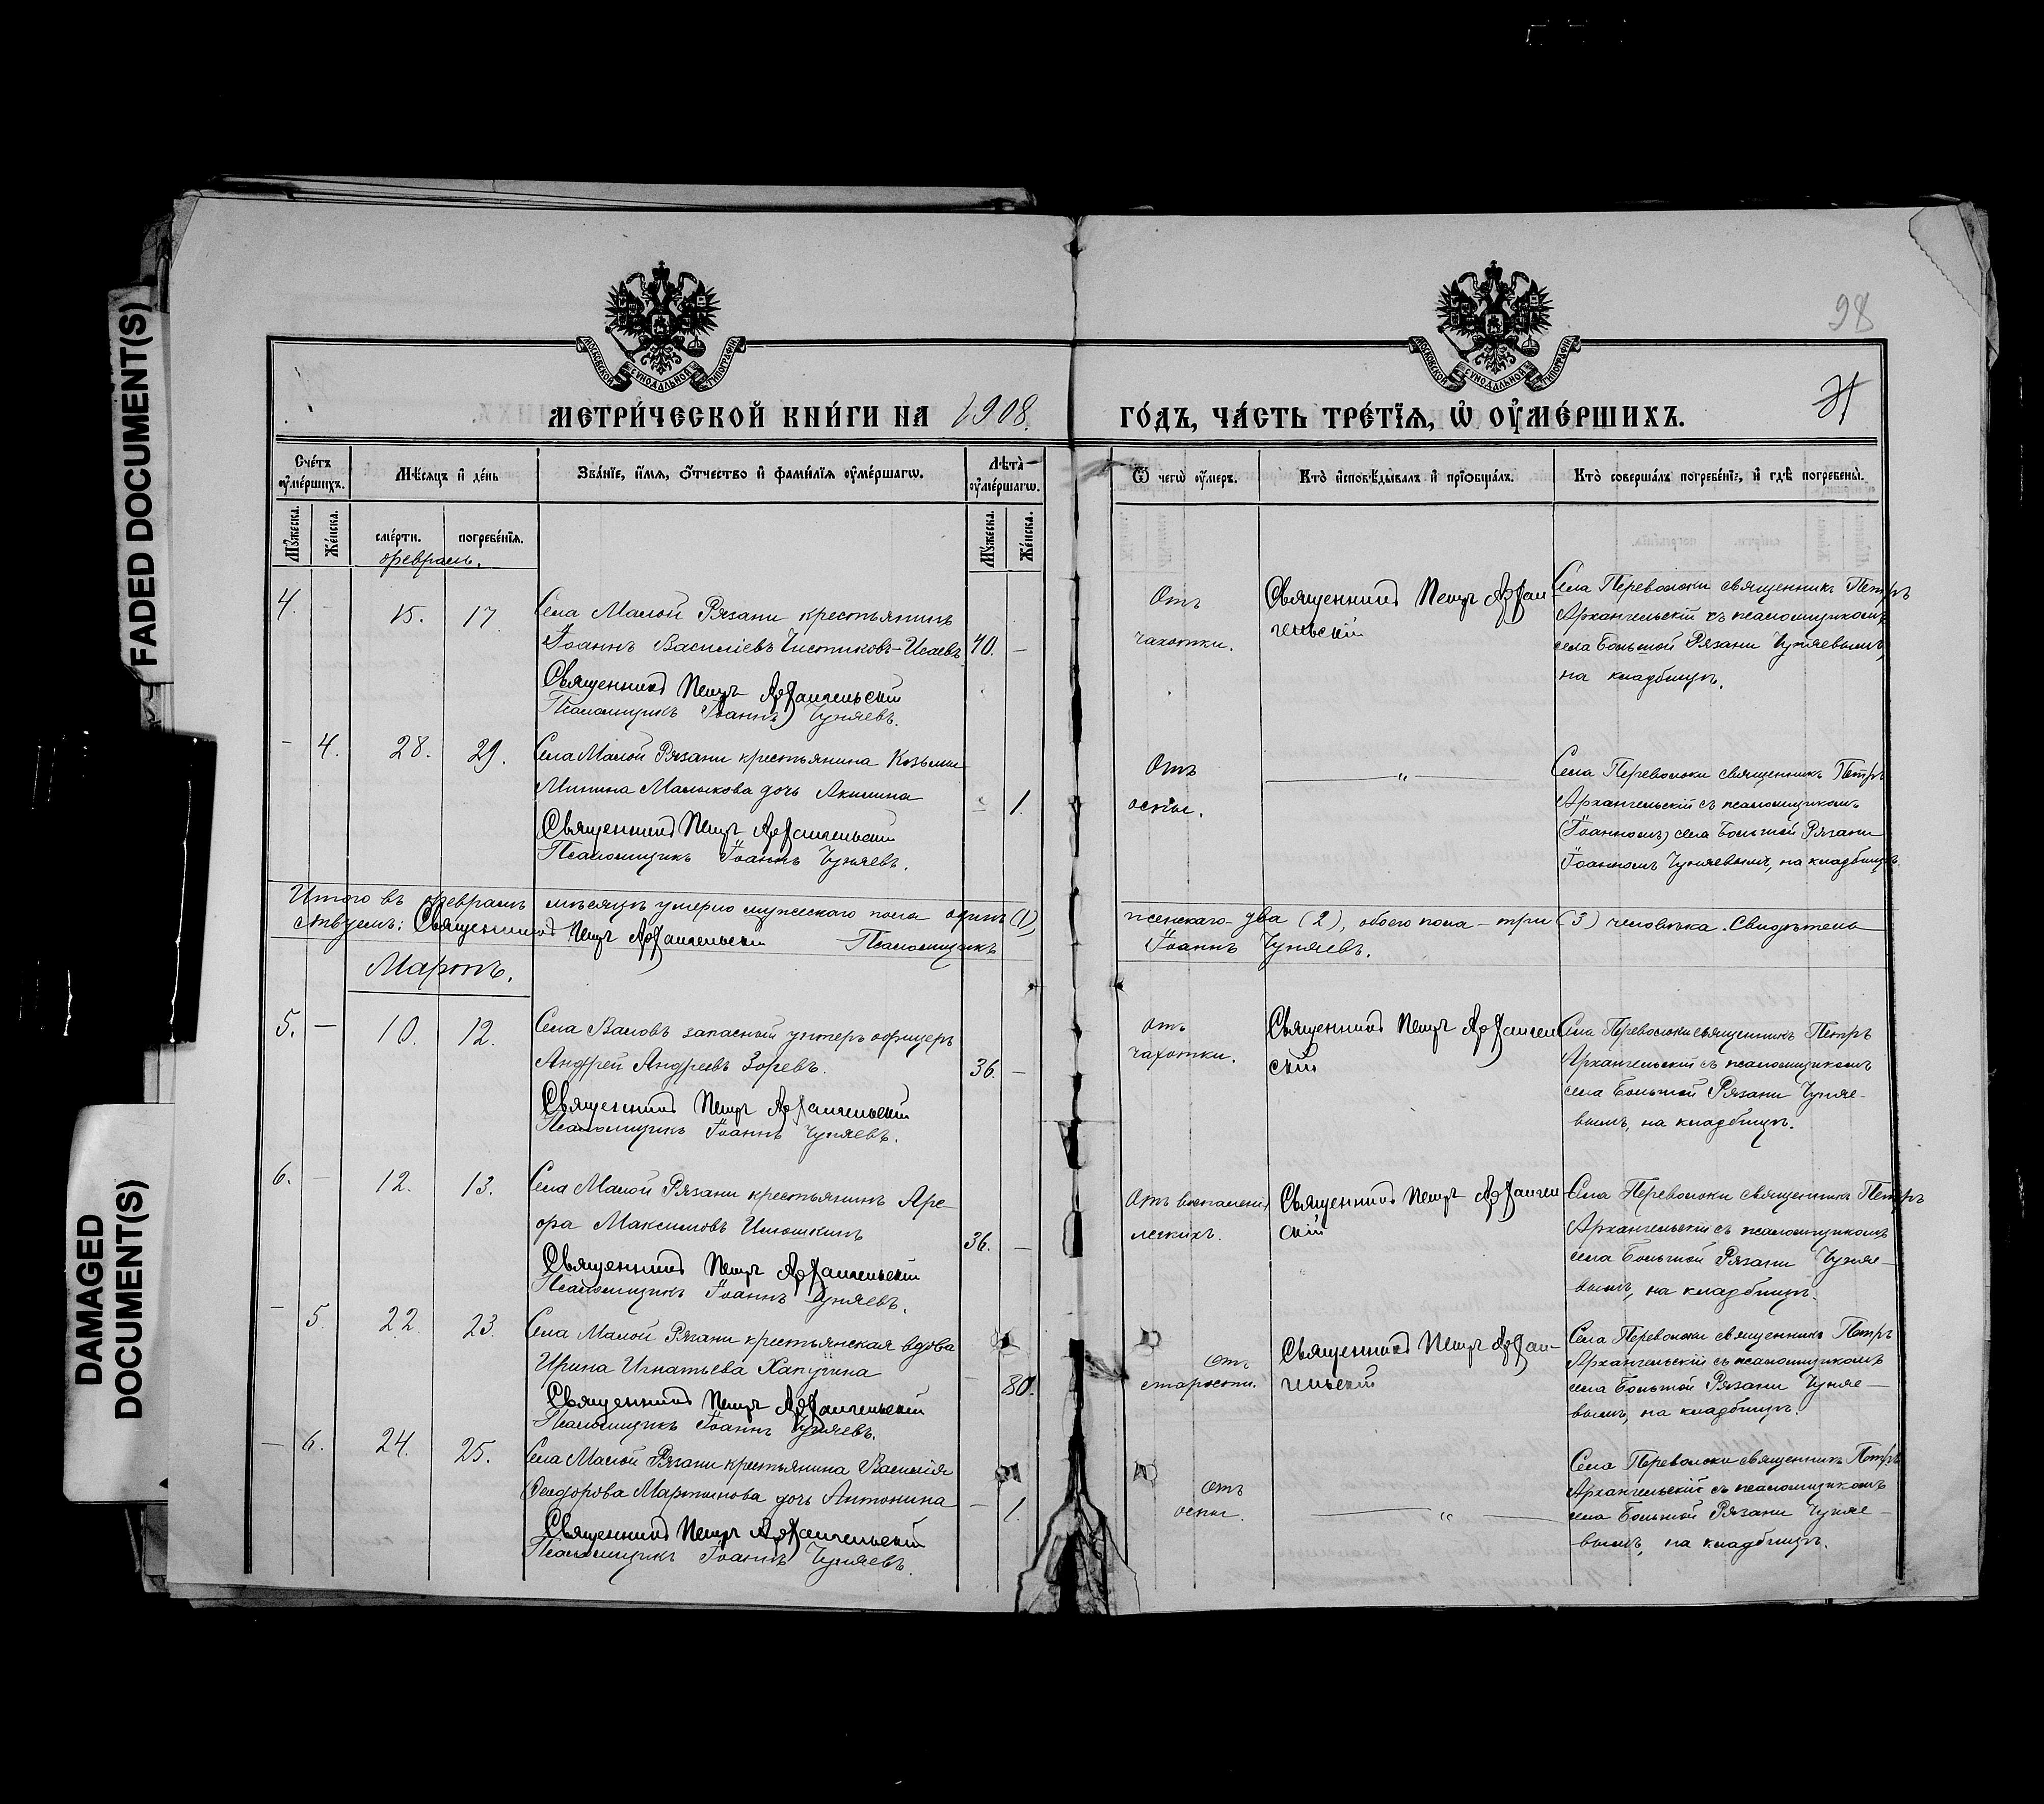 FADED DOCUMENT(S)
DAMAGED
DOCUMENT(S)
98
МОСКОВСКОЙ СУНОДАЛЬНОЙ ТИПОГРАФІИ
МОСКОВСКОЙ СУНОДАЛЬНОЙ ТИПОГРАФІИ
МЕТРИ́ЧЕСКОЙ КНИ́ГИ НА 1908.
ГО́ДЪ, ЧА́СТЬ ТРЕ́ТЇѦ, Ѡ҆ ОУ҆МЕ́РШИХЪ.
Сче́тъ оу҆ме́ршихъ.
Мѣ́сяцъ и҆ де́нь
Зва́нїе, и҆́мѧ, ѻ҆́тчество и҆ фами́лїѧ оу҆ме́ршагѡ.
Лѣта̀ оу҆ме́ршагѡ.
Ѿ чегѡ̀ оу҆́меръ.
Кто̀ и҆сповѣ́дывалъ и҆ прїѻбща́лъ.
Кто̀ соверша́лъ погребе́нїе, и҆ гдѣ̀ погребены̀.
Мꙋ́жеска.
Же́нска.
сме́рти.
погребе́нїѧ.
Мꙋ́жеска.
Же́нска.
февраль.
4. - 15. 17
Села Малой Рязани крестьянинъ
Іоаннъ Василіевъ Чистиковъ-Исаевъ 40. -
Священникъ Петръ Архангельскій
Псаломщикъ Іоаннъ Чуняевъ.
Отъ
чахотки.
Священникъ Петръ Архан
гельскій
Села Переволоки священникъ Петръ
Архангельскій съ псаломщикомъ
села Большой Рязани Чуняевымъ,
на кладбищѣ.
- 4. 28. 29.
Села Малой Рязани крестьянина Козьмы
Минина Малыкова дочь Акилина - 1.
Священникъ Петръ Архангельскій
Псаломщикъ Іоаннъ Чуняевъ.
Отъ
оспы.
— „ —
Села Переволоки священникъ Петръ
Архангельскій съ псаломщикомъ
(Іоанномъ) села Большой Рязани
Іоанномъ Чуняевымъ, на кладбищѣ.
Итого въ февралѣ мѣсяцѣ умерло мужескаго пола одинъ (1),
женскаго - два (2), обоего пола - три (3) человѣка. Свидѣтель
ствуемъ: Священникъ Петръ Архангельскій Псаломщикъ
Іоаннъ Чуняевъ.
Мартъ.
5. — 10. 12.
Села Валовъ запасный унтеръ офицеръ
Андрей Андреевъ Зоревъ. 36. -
Священникъ Петръ Архангельскій
Псаломщикъ Іоаннъ Чуняевъ.
Отъ
чахотки.
Священникъ Петръ Архангель
скій
Села Переволоки священникъ Петръ
Архангельскій съ псаломщикомъ
села Большой Рязани Чуняе-
вымъ, на кладбищѣ.
6. - 12. 13.
Села Малой Рязани крестьянинъ Аре-
фа Максимовъ Илюшкинъ 36. —
Священникъ Петръ Архангельскій
Псаломщикъ Іоаннъ Чуняевъ.
Отъ воспаленія
легкихъ.
Священникъ Петръ Архангель
скій
Села Переволоки священникъ Петръ
Архангельскій съ псаломщикомъ
села Большой Рязани Чуняе-
вымъ, на кладбищѣ.
- 5. 22. 23.
Села Малой Рязани крестьянская вдова
Ирина Игнатьева Хапугина - 80.
Священникъ Петръ Архангельскій
Псаломщикъ Іоаннъ Чуняевъ.
Отъ
старости.
Священникъ Петръ Архан-
гельскій
Села Переволоки священникъ Петръ
Архангельскій съ псаломщикомъ
села Большой Рязани Чуняе-
вымъ, на кладбищѣ.
- 6. 24. 25.
Села Малой Рязани крестьянина Василія
Ѳеодорова Мартынова дочь Антонина - 1.
Священникъ Петръ Архангельскій
Псаломщикъ Іоаннъ Чуняевъ.
Отъ
оспы.
— „ —
Села Переволоки священникъ Петръ
Архангельскій съ псаломщикомъ
села Большой Рязани Чуняе-
вымъ, на кладбищѣ.